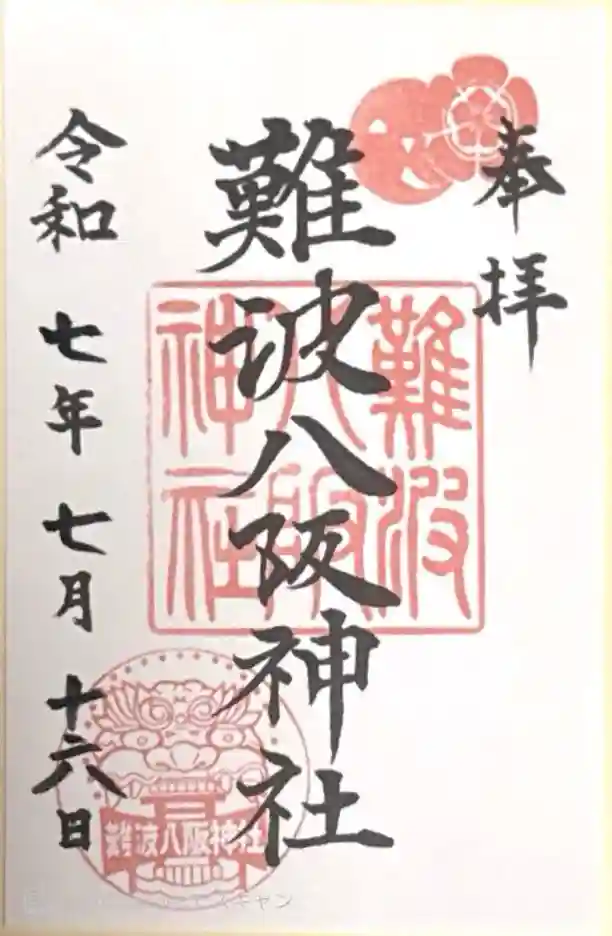 奉拝
難波八阪神社
令和 七年 七月 十六日
難波八阪神社
難波八阪神社
キャン